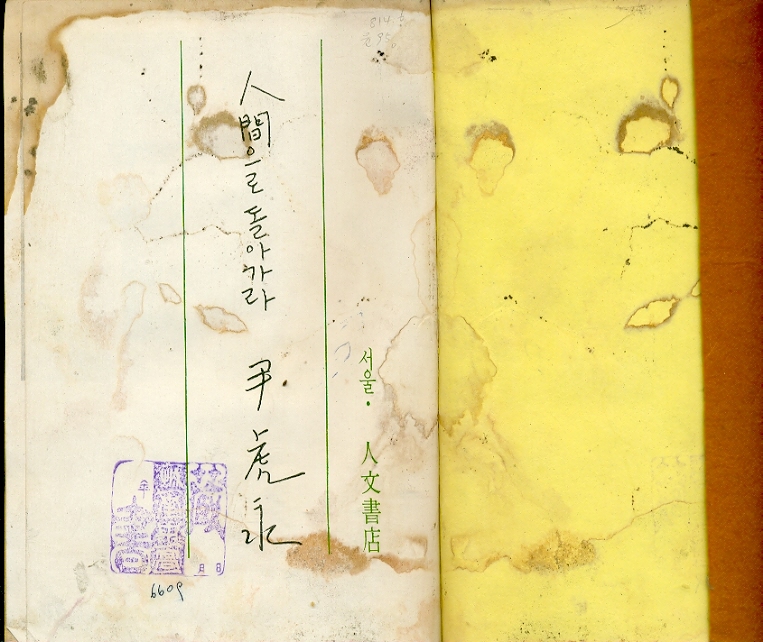 서울·人文書店
人間으로 돌아가라 尹虎永
6609